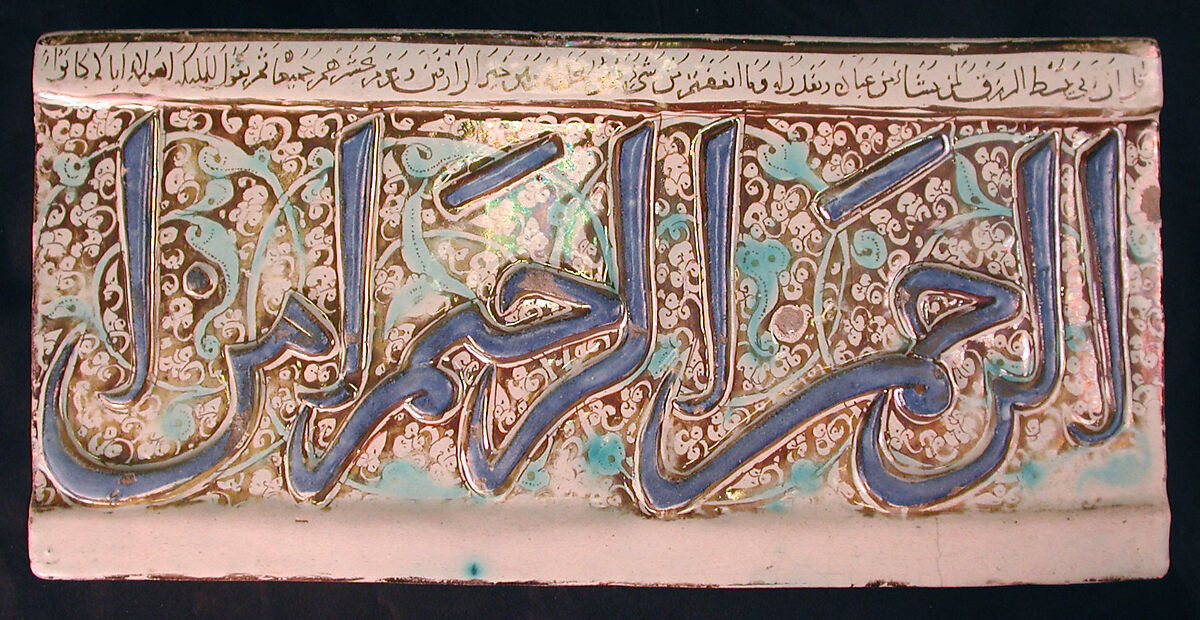 قل ان ربى يبسط الرزق لمن يشا من عباده ويقدر له وما انفقتم من شى فهو يخلفه وهو خير الرازقين ويوم يحشرهم جميعا ثم يقول للملىكه اهولا اياكم كانوا
الرحمن الرحيم